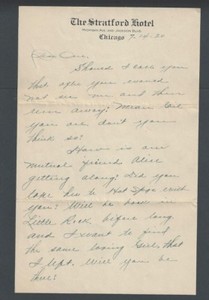 The Stratford Hotel
Chicago
Should I call you
that after you
not see me and then
away? Mean Girl
you are don't you
think so?
How is our
mutual friend Alice
getting along? Did you
take her to Hot Spgs with
you? Will be down in
Little Rock before long
and I want to find
the same loving Girl that
I left. Will you be
here?